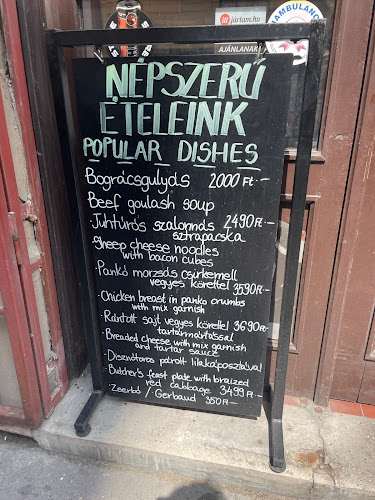 jártam.hu
AJÁNLANAK
AMBULANC
NÉPSZERŰ
ÉTELEINK
POPULAR DISHES
Bográcsgulyás 2000 Ft.-
Beef goulash soup
Juhtúrós szalonnás 2490 Ft.-
sztrapacska
Sheep cheese noodles
with bacon cubes
Pankó morzsás csirkemell
vegyes körettel 3590 Ft.-
Chicken breast in panko crumbs
with mix garnish
Rántott sajt vegyes körettel 3690 Ft.-
tartármártással
Breaded cheese with mix garnish
and tartar sauce
Disznótoros párolt lilakáposztával
Butcher's feast plate with braized
red cabbage 3499 Ft.-
Zserbó / Gerbaud 950 Ft.-